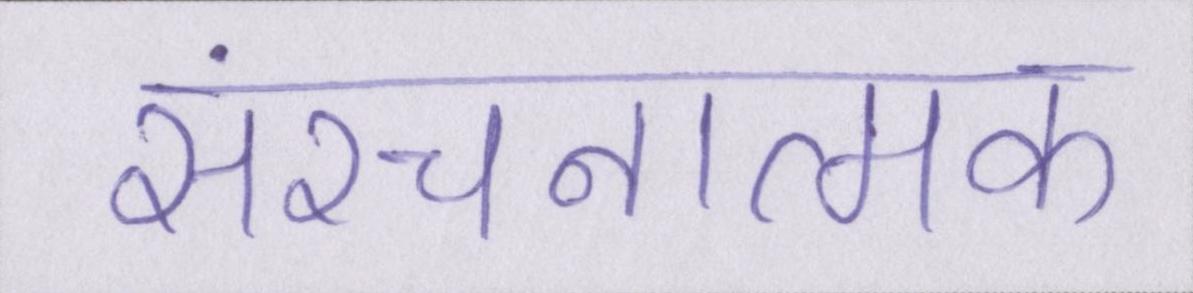 संरचनात्मक